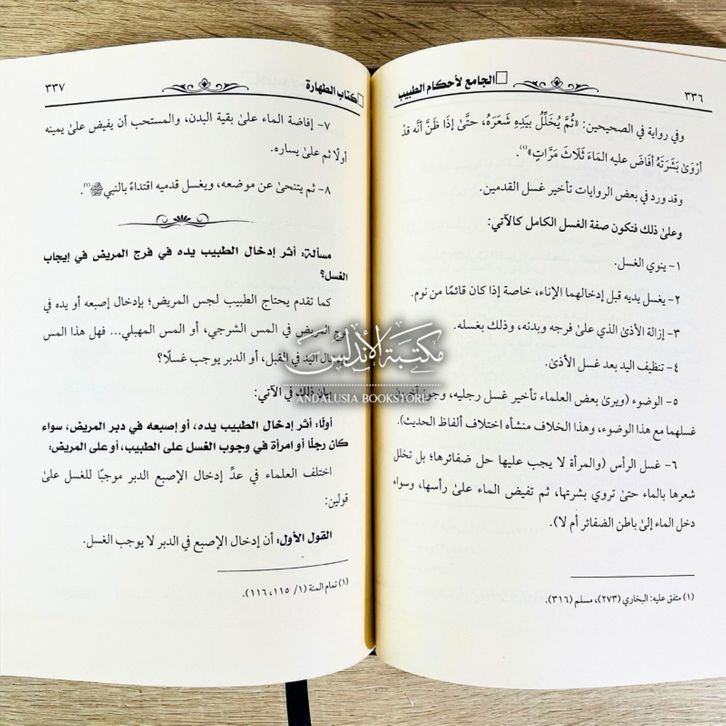 ٣٣٦
الجامع لأحكام الطبيب
وفي رواية في الصحيحين: «ثُمَّ يُخَلِّلُ بِيَدِهِ شَعَرَهُ، حَتَّىٰ إِذَا ظَنَّ أَنَّه قَدْ
أَرْوَىٰ بَشَرَتَهُ أَفَاضَ عليه المَاءَ ثَلَاثَ مَرَّاتٍ»(١).
وقد ورد في بعض الروايات تأخير غسل القدمين.
وعلىٰ ذلك فتكون صفة الغسل الكامل كالآتي:
١- ينوي الغسل.
٢- يغسل يديه قبل إدخالهما الإناء، خاصة إذا كان قائمًا من نوم.
٣- إزالة الأذىٰ الذي علىٰ فرجه وبدنه، وذلك بغسله.
٤- تنظيف اليد بعد غسل الأذىٰ.
٥- الوضوء (ويرىٰ بعض العلماء تأخير غسل رجليه، وجوز
غسلهما مع هذا الوضوء، وهذا الخلاف منشأه اختلاف ألفاظ الحديث).
٦- غسل الرأس (والمرأة لا يجب عليها حل ضفائرها؛ بل تخلل
شعرها بالماء حتىٰ تروي بشرتها، ثم تفيض الماء علىٰ رأسها، وسواء
دخل الماء إلىٰ باطن الضفائر أم لا).
(١) متفق عليه: البخاري (٢٧٣)، مسلم (٣١٦).
كتاب الطهارة
٣٣٧
٧- إفاضة الماء علىٰ بقية البدن، والمستحب أن يفيض علىٰ يمينه
أولًا ثم علىٰ يساره.
٨- ثم يتنحىٰ عن موضعه، ويغسل قدميه اقتداءً بالنبي ﷺ(١).
مسألة: أثر إدخال الطبيب يده في فرج المريض في إيجاب
الغسل؟
كما تقدم يحتاج الطبيب لجس المريض؛ بإدخال إصبعه أو يده في
فرج المريض في المس الشرجي، أو المس المهبلي... فهل هذا المس
اليد في القبل، أو الدبر يوجب غسلًا؟
بيان ذلك في الآتي:
أولًا: أثر إدخال الطبيب يده، أو إصبعه في دبر المريض، سواء
كان رجلًا أو امرأة في وجوب الغسل على الطبيب، أو على المريض:
اختلف العلماء في عدِّ إدخال الإصبع الدبر موجبًا للغسل علىٰ
قولين:
القول الأول: أن إدخال الإصبع في الدبر لا يوجب الغسل.
(١) تمام المنة (١/ ١١٥، ١١٦).
مكتبة الأندلس
ANDALUSIA BOOKSTORE